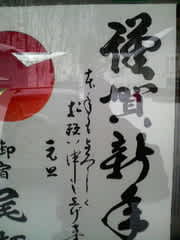 謹賀新年
本年もよろしく
お願い申し上げます
元旦
御宿
尾